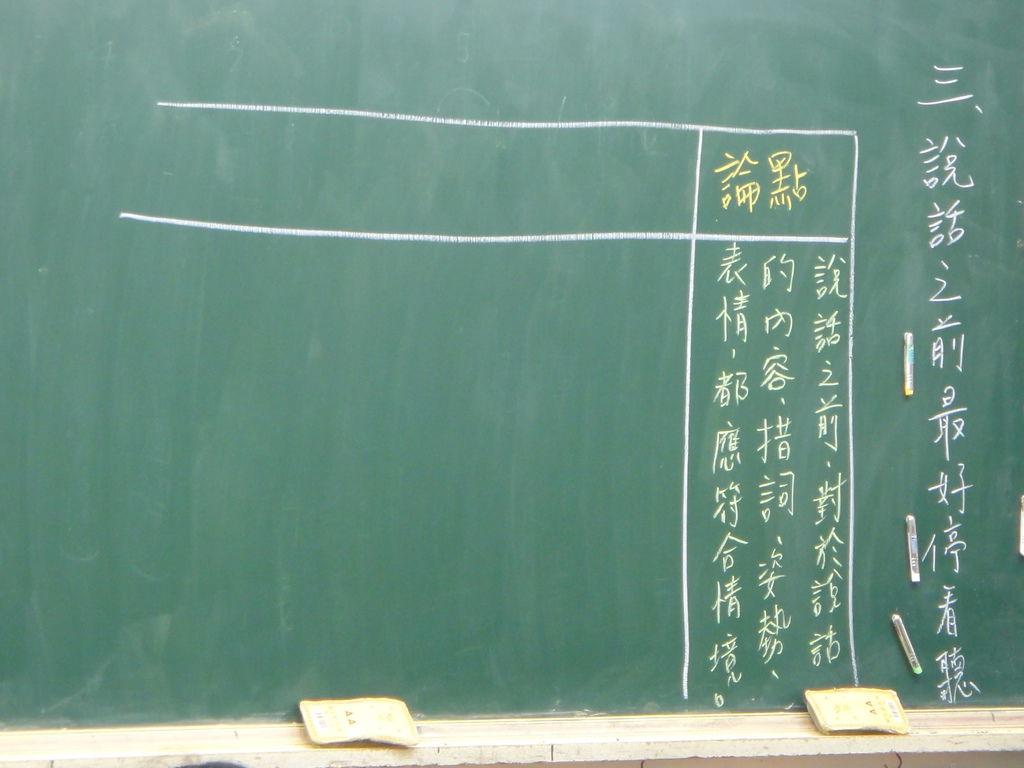 三、說話之前最好停看聽
論點
說話之前，對於說話
的內容、措詞、姿勢、
表情，都應符合情境。